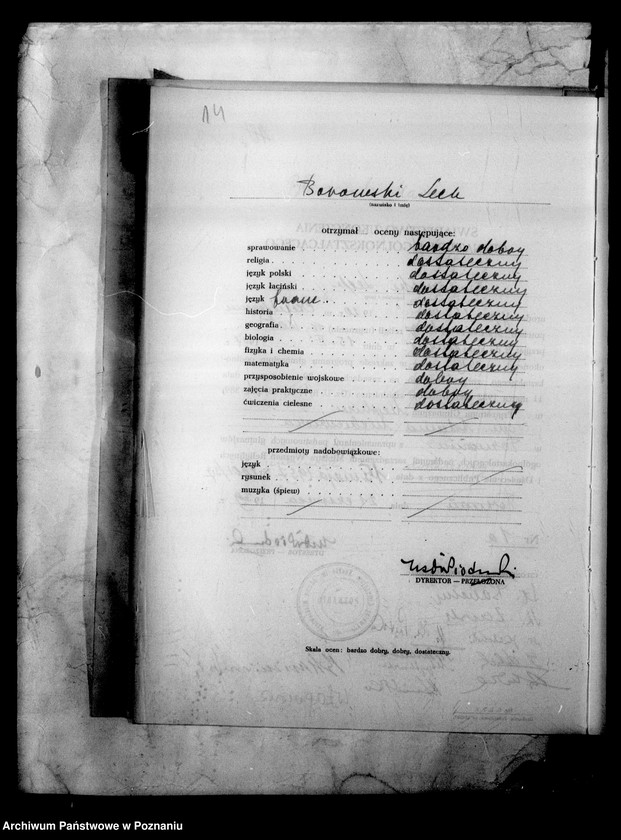 14
Borowski Lech
(nazwisko i imię)
otrzymał oceny następujące:
sprawowanie bardzo dobry
religia dostateczny
język polski dostateczny
język łaciński dostateczny
język franc. dostateczny
historia dostateczny
geografia dostateczny
biologia dostateczny
fizyka i chemia dostateczny
matematyka dostateczny
przysposobienie wojskowe dobry
zajęcia praktyczne dobry
ćwiczenia cielesne dostateczny
przedmioty nadobowiązkowe:
język
rysunek
muzyka (śpiew)
DYREKTOR — PRZEŁOŻONA
Skala ocen: bardzo dobry, dobry, dostateczny.
Archiwum Państwowe w Poznaniu